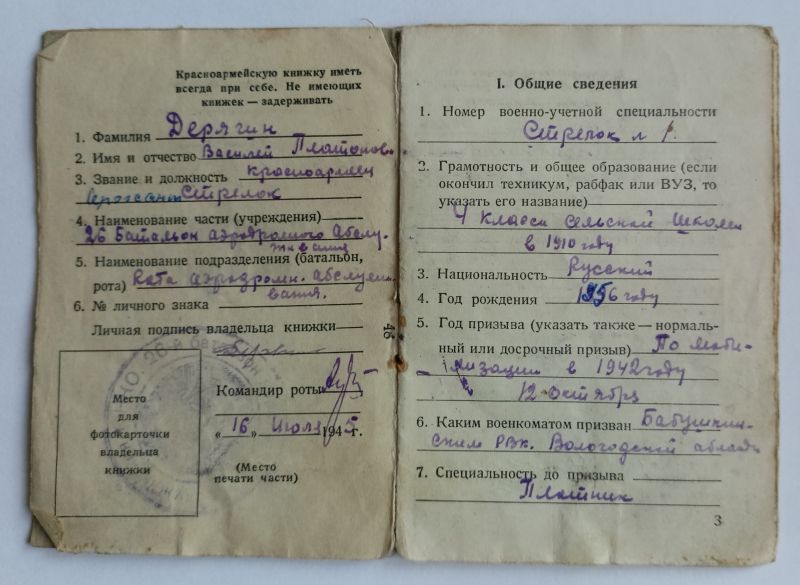 Красноармейскую книжку иметь
всегда при себе. Не имеющих
книжек — задерживать
1. Фамилия Дерягин
2. Имя и отчество Василей Платонов.
3. Звание и должность красноармеец
Стрелок
4. Наименование части (учреждения)
26 Баталион аэродромного Абслу-
живания
5. Наименование подразделения (батальон,
рота) Рота аэродромн. Абслужи-
вания.
6. № личного знака
Личная подпись владельца книжки
Место
для
фотокарточки
владельца
книжки
Командир роты
„16" Июля 1945 г.
(Место
печати части)
46
I. Общие сведения
1. Номер военно-учетной специальности
Стрелок л 1.
2. Грамотность и общее образование (если
окончил техникум, рабфак или ВУЗ, то
указать его название)
4 класса сельской школы
в 1910 году
3. Национальность Русский
4. Год рождения году
5. Год призыва (указать также — нормаль-
ный или досрочный призыв) По моби-
лизации в 1942 году
12 октября
6. Каким военкоматом призван Бабушкин-
ским РВК. Вологодской области
7. Специальность до призыва
Плотник
3